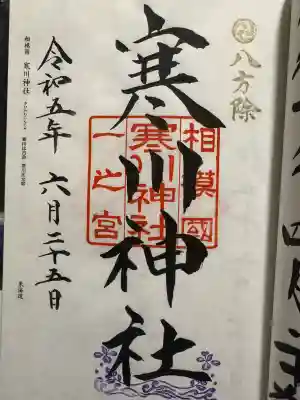 八方除
寒川神社
相模國
寒川神社
一之宮
令和五年 六月二十五日
相模國 寒川神社